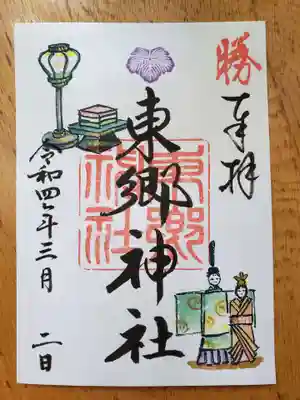 勝
奉拝
東郷神社
東郷神社
令和四年三月 二日